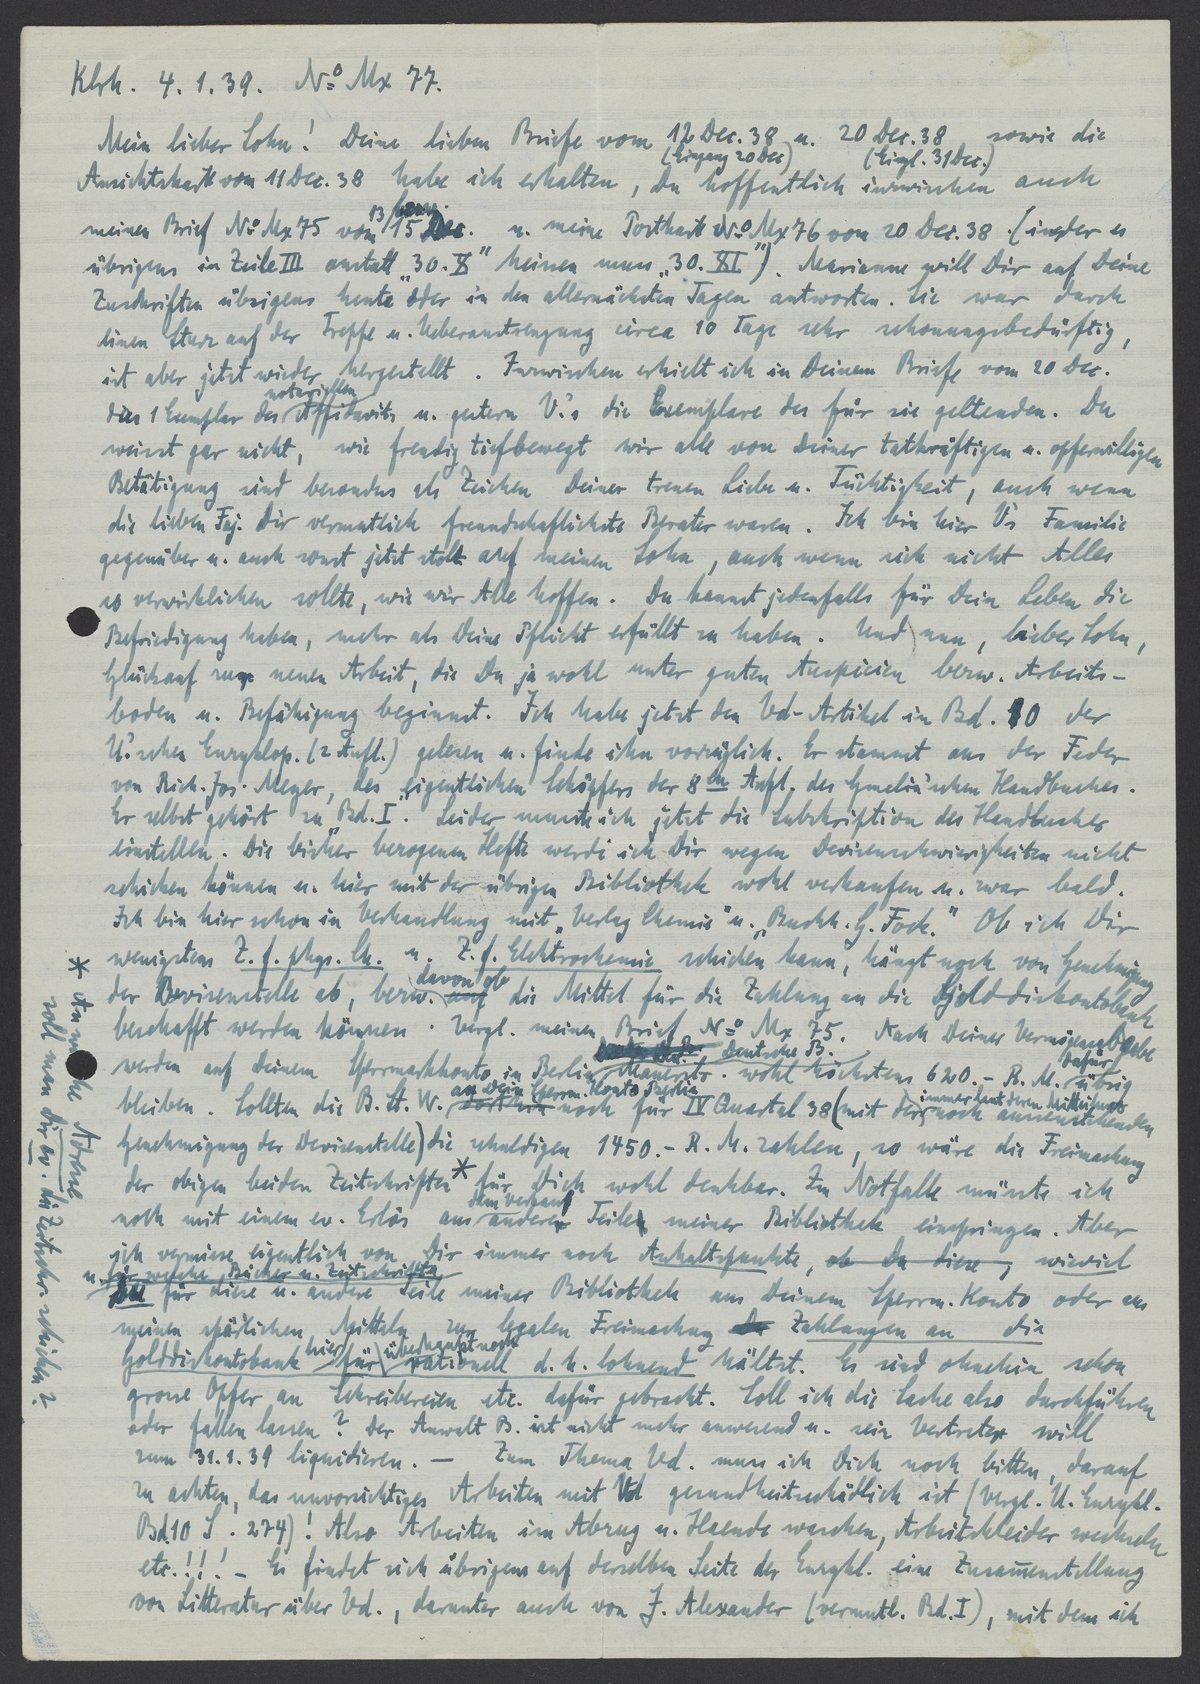 Klrh. 4.1.39. No Mx 77.
Mein lieber Sohn! Deine lieben Briefe vom 12 Dec. 38 u. 20 Dec. 38 sowie die
(Eingang 20 Dec) (Eingl. 31 Dec.)
Ansichtskarte vom 11 Dec. 38 habe ich erhalten, Du hoffentlich inzwischen auch
meinen Brief No Mx 75 vom 13/bezw. 15 Dec. u. meine Postkarte No Mx 76 vom 20 Dec. 38. (in der es
übrigens in Zeile III anstatt „30. X" heissen muss „30. XI"). Marianne will Dir auf Deine
Zuschriften übrigens heute oder in den allernächsten Tagen antworten. Sie war durch
einen Sturz auf der Treppe u. Ueberanstrengung circa 10 Tage sehr schonungsbedürftig,
ist aber jetzt wieder hergestellt. Inzwischen erhielt ich in Deinem Briefe vom 20 Dec.
das 1 Exemplar des notariellen Affidavits u. gestern V.'s die Exemplare des für sie geltenden. Du
weisst gar nicht, wie freudig tiefbewegt wir alle von Deiner tatkräftigen u. opferwilligen
Betätigung sind besonders als Zeichen Deiner treuen Liebe u. Tüchtigkeit, auch wenn
die lieben Faj. Dir vermutlich freundschaftlichste Berater waren. Ich bin hier V's Familie
gegenüber u. auch sonst jetzt stolz auf meinen Sohn, auch wenn sich nicht Alles
so verwirklichen sollte, wie wir Alle hoffen. Du kannst jedenfalls für Dein Leben die
Befriedigung haben, mehr als Deine Pflicht erfüllt zu haben. Und nun, lieber Sohn,
Glückauf zur neuen Arbeit, die Du ja wohl unter guten Auspicien bezw. Arbeits-
boden u. Befähigung beginnst. Ich habe jetzt den Vd-Artikel in Bd. 10 der
U.'schen Enzyklop. (2 Aufl.) gelesen u. finde ihn vorzüglich. Er stammt aus der Feder
von Rich. Jos. Meyer, des eigentlichen Schöpfers der 8ten Aufl. des Gmelin'schen Handbuches.
Er selbst gehört zu „Bd. I". Leider musste ich jetzt die Subskription des Handbuches
einstellen. Die bisher bezogenen Hefte werde ich Dir wegen Devisenschwierigkeiten nicht
schicken können u. hier mit der übrigen Bibliothek wohl verkaufen u. zwar bald.
Ich bin hier schon in Verhandlung mit „Verlag Chemie" u. „Buchh. G. Fock." Ob ich Dir
wenigstens Z. f. phys. Ch. u. Z. f. Elektrochemie schicken kann, hängt noch von Genehmigung
der Devisenstelle ab, bezw. davon ob die Mittel für die Zahlung an die Golddiskontobank
beschafft werden können. Vergl. meinen Brief No Mx 75. Nach Deiner Vermögensabgabe
werden auf Deinem Sperrmarkkonto in Berlin Deutsche B. wohl höchstens 620.- R.M. dafür übrig
bleiben. Sollten die B. St. W. an Dein Sperrm. Konto Berlin noch für IV Quartal 38 (mit der immer laut deren Mitteilung noch ausstehenden
Genehmigung der Devisenstelle) die schuldigen 1450.- R.M. zahlen, so wäre die Freimachung
der obigen beiden Zeitschriften * für Dich wohl denkbar. Im Notfalle müsste ich
noch mit einem ev. Erlös aus dem Verkauf anderer Teile meiner Bibliothek einspringen. Aber
ich vermisse eigentlich von Dir immer noch Anhaltspunkte, ob Du diese, wieviel
u. für welche Bücher u. Zeitschriften
Du für diese u. andere Teile meiner Bibliothek aus Deinem Sperrm. Konto oder aus
meinen spärlichen Mitteln zur legalen Freimachung Zahlungen an die
Golddiskontobank hierfür überhaupt noch rationell d.h. lohnend hältst. Es sind ohnehin schon
grosse Opfer an Schreibereien etc. dafür gebracht. Soll ich die Sache also durchführen
oder fallen lassen? Der Anwalt B. ist nicht mehr anwesend u. sein Vertreter will
zum 31.1.39 liquidieren. — Zum Thema Vd. muss ich Dich noch bitten, darauf
zu achten, das unvorsichtiges Arbeiten mit Vd gesundheitsschädlich ist (Vergl. U. Enzykl.
Bd 10 S. 274)! Also Arbeiten im Abzug u. Haende waschen, Arbeitskleider wechseln
etc.!!! - Es findet sich übrigens auf derselben Seite der Enzykl. eine Zusammenstellung
von Litteratur über Vd., darunter auch von J. Alexander (vermutl. Bd. I), mit dem ich
* An welche Adresse
soll man Dir ev. die Zeitschr. schicken?